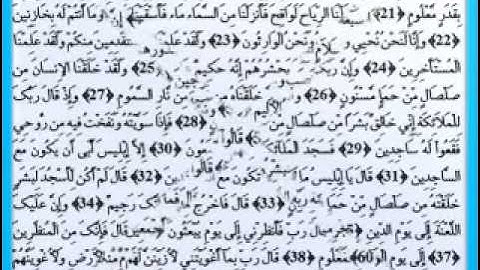 بِقَدَرٍ مَعْلُومٍ ﴿21﴾ الرِّيَاحَ لَوَاقِحَ فَأَنْزَلْنَا مِنَ السَّمَاءِ مَاءً وَمَا أَنْتُمْ لَهُ بِخَازِنِينَ
﴿22﴾ وَإِنَّا لَنَحْنُ نُحْيِي وَنَحْنُ الْوَارِثُونَ ﴿23﴾ وَلَقَدْ مِنْكُمْ وَلَقَدْ عَلِمْنَا
الْمُسْتَأْخِرِينَ ﴿24﴾ وَإِنَّ رَبَّكَ يَحْشُرُهُمْ إِنَّهُ حَكِيمٌ 25﴾ وَلَقَدْ خَلَقْنَا الْإِنْسَانَ مِنْ
صَلْصَالٍ مِنْ حَمَإٍ مَسْنُونٍ ﴿26﴾ خَلَقْنَاهُ مِنْ نَارِ السَّمُومِ ﴿27﴾ وَإِذْ قَالَ رَبُّكَ
لِلْمَلَائِكَةِ إِنِّي خَالِقٌ بَشَرًا مِنْ صَلْصَالٍ مِنْ ﴿28﴾ فَإِذَا سَوَّيْتُهُ وَنَفَخْتُ فِيهِ مِنْ رُوحِي
فَقَعُوا لَهُ سَاجِدِينَ ﴿29﴾ فَسَجَدَ قَالُوا ﴿30﴾ إِلَّا إِبْلِيسَ أَبَى أَنْ يَكُونَ مَعَ
السَّاجِدِينَ ﴿31﴾ قَالَ يَا إِبْلِيسُ مَا تَكُونَ مَعَ قَالُوا ﴿32﴾ قَالَ لَمْ أَكُنْ لِأَسْجُدَ لِبَشَرٍ
خَلَقْتَهُ مِنْ صَلْصَالٍ مِنْ حَمَإٍ ﴿33﴾ قَالَ فَاخْرُجْ رَجِيمٌ ﴿34﴾ وَإِنَّ عَلَيْكَ
اللَّعْنَةَ إِلَى يَوْمِ الدِّينِ قَالَ رَبِّ فَأَنْظِرْنِي إِلَى يَوْمِ يُبْعَثُونَ قَالَ فَإِنَّكَ مِنَ الْمُنْظَرِينَ
﴿37﴾ إِلَى يَوْمِ الْمَعْلُومِ ﴿38﴾ قَالَ رَبِّ بِمَا أَغْوَيْتَنِي لَأُزَيِّنَنَّ لَهُمْ وَلَأُغْوِيَنَّهُمْ